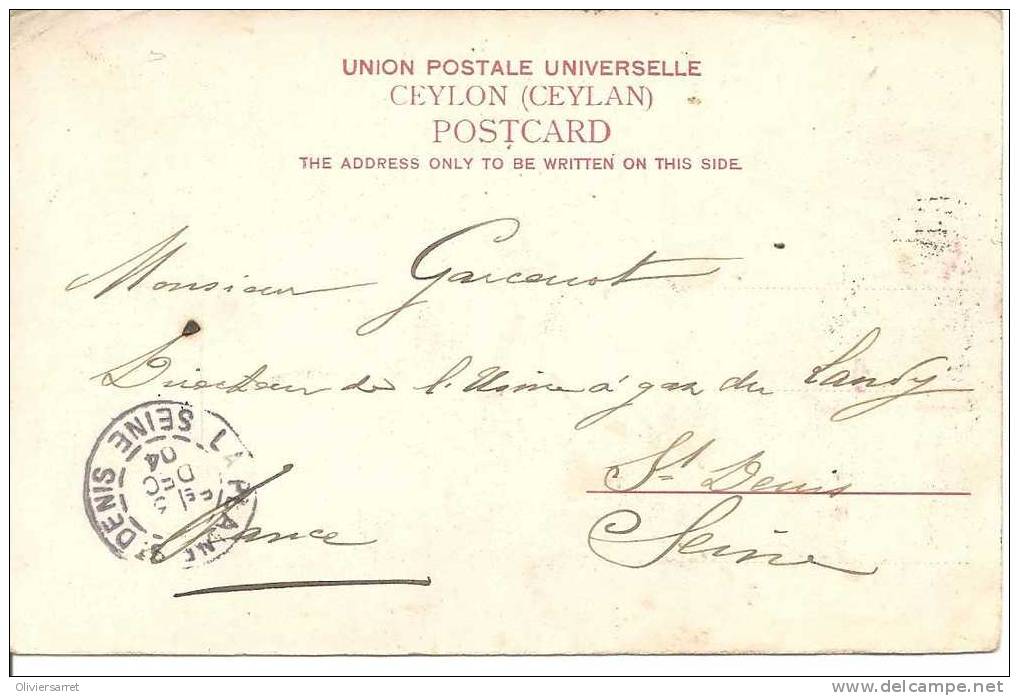 UNION POSTALE UNIVERSELLE
CEYLON (CEYLAN)
POSTCARD
THE ADDRESS ONLY TO BE WRITTEN ON THIS SIDE.
Monsieur Garcenot
Directeur de l'Usine à gaz du Landy
St Denis
Seine
France
DENIS
SEINE
04
Oliviersarret
www.delcampe.net